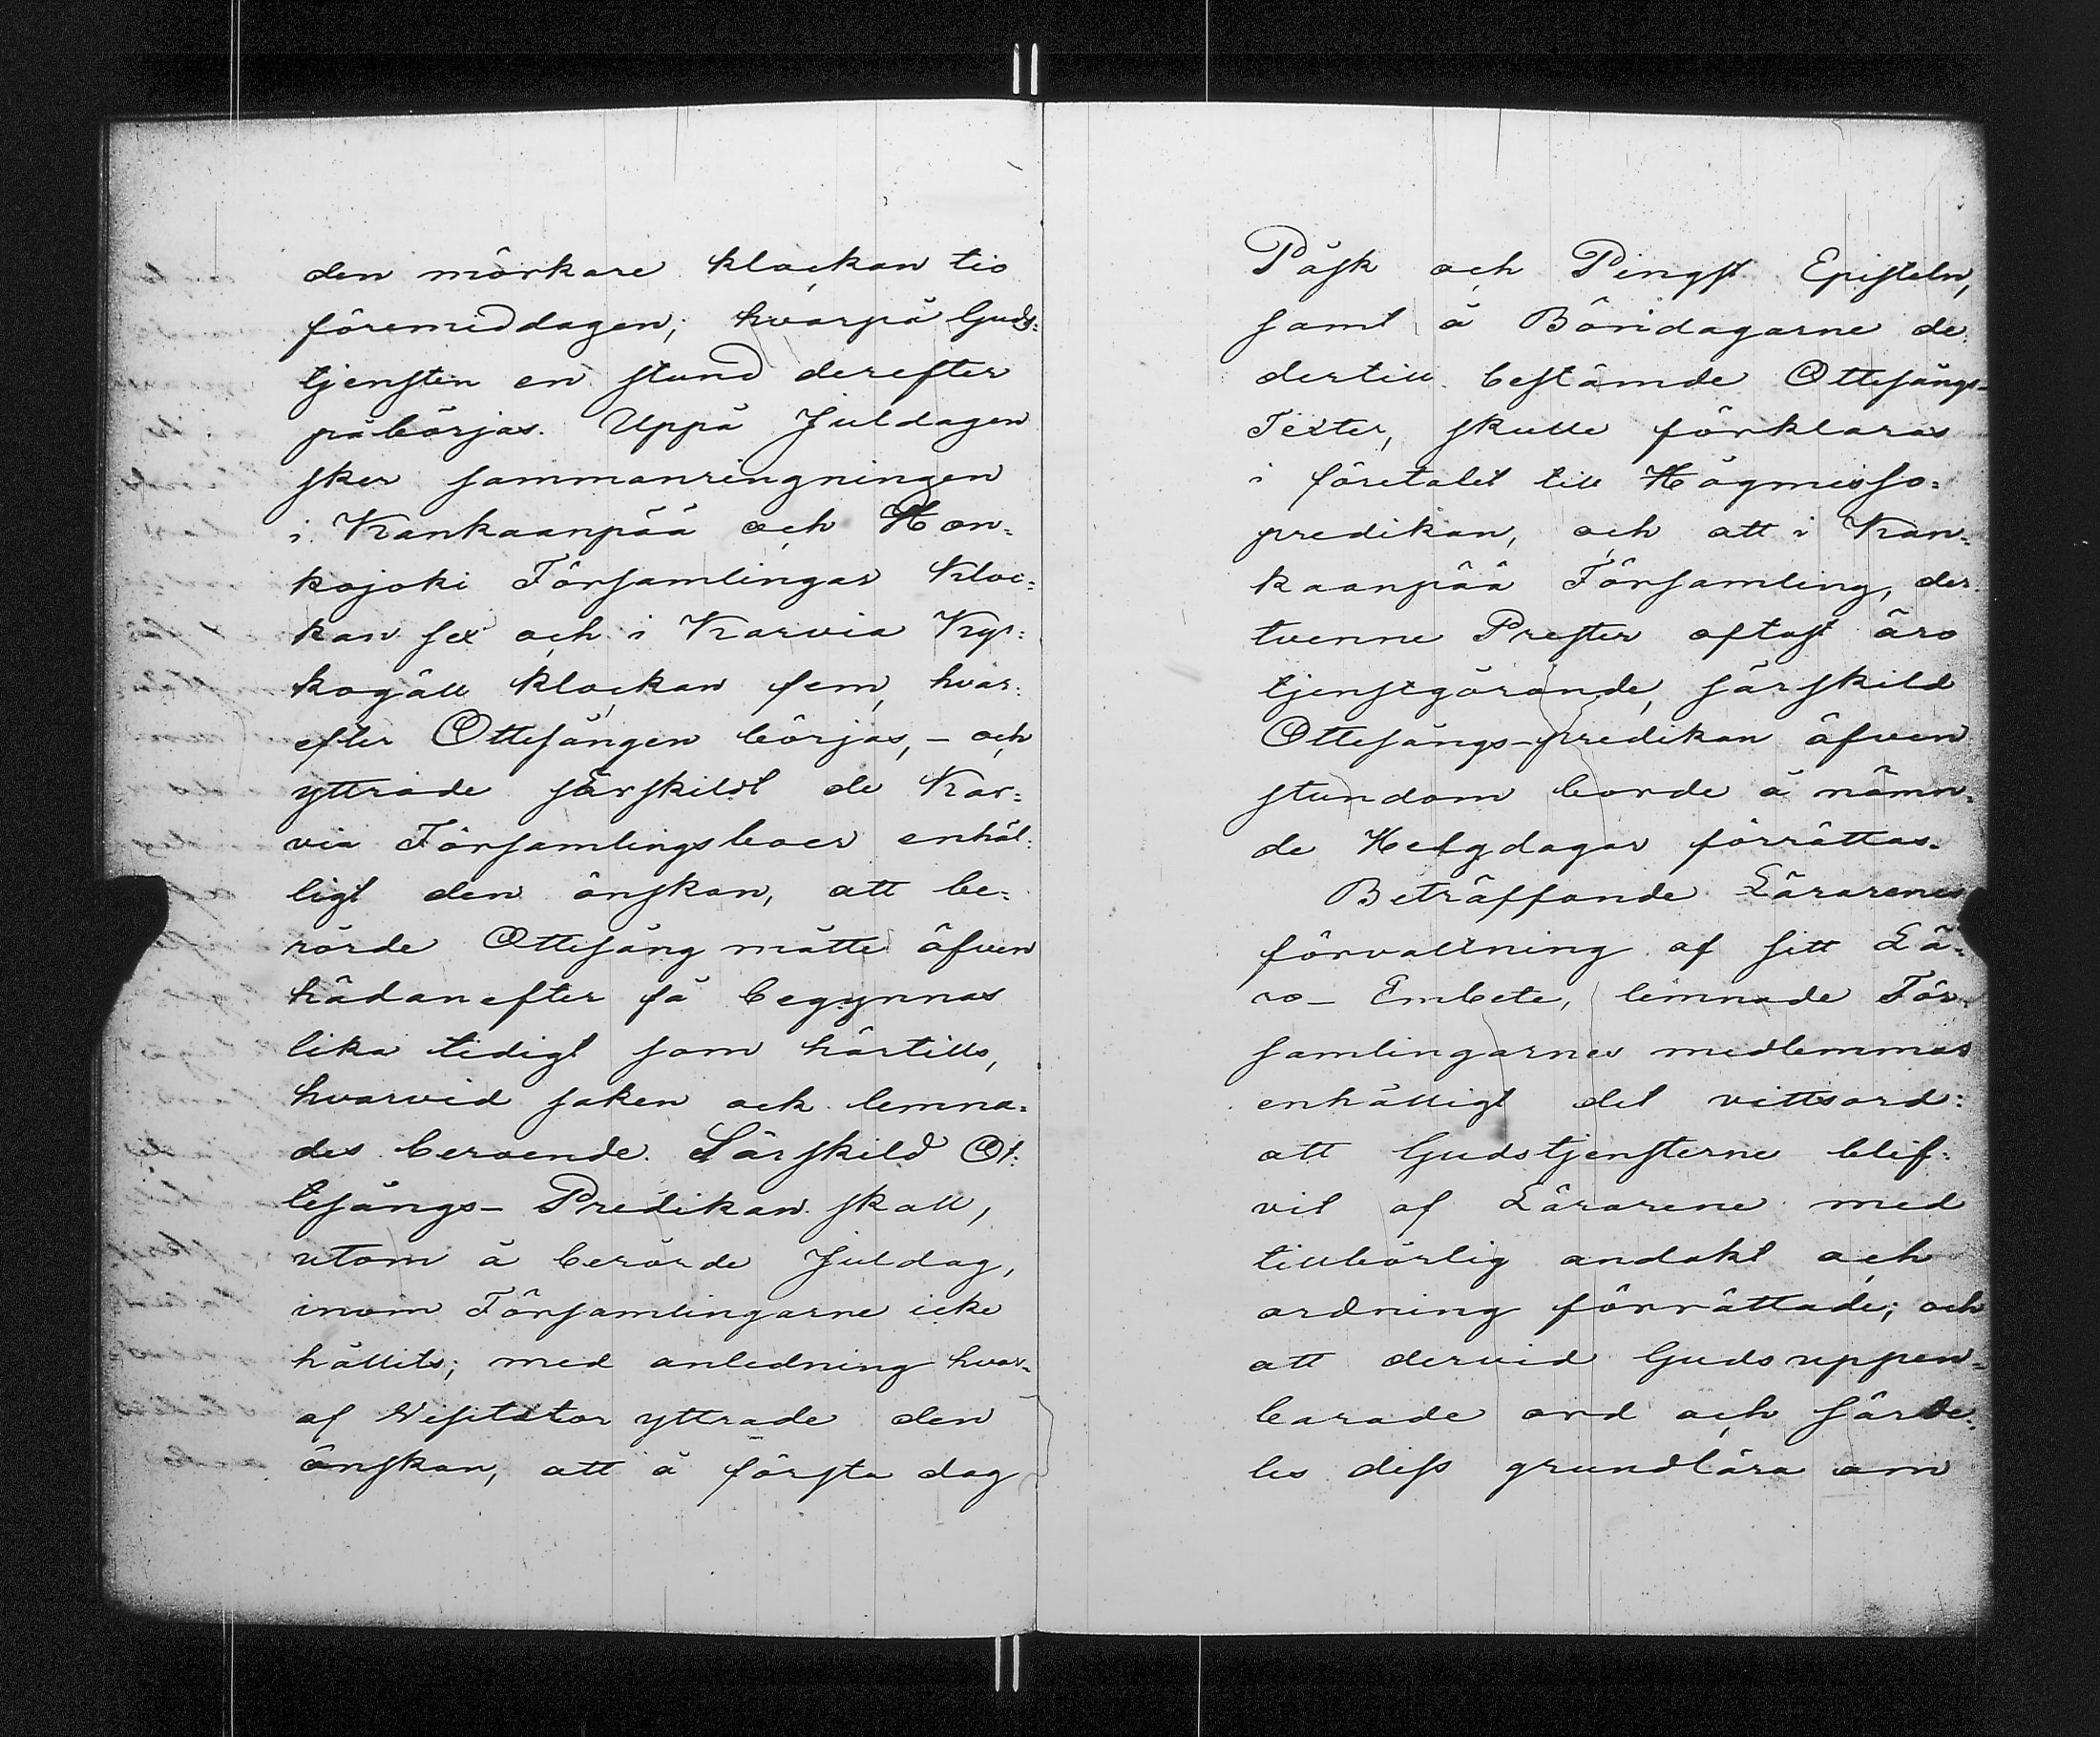 den mörkare klockan tio
föremiddagen; hvarpå Guds=
tjensten en stund derefter
påbörjas. Uppå Juldagen
sker sammanringningen
i Kankaanpää och Hon=
kojoki Församlingar kloc=
kan sex och i Karvia Kyr=
kogäll klockan fem, hvar=
efter Ottesången börjas, – och
yttrade särskildt de Kar=
via Församlingsboer enhäl=
ligt den önskan, att be=
rörde Ottesång måtte äfven
hädanefter få begynnas
lika tidigt som härtills,
hvarvid saken ock lemna=
des beroende. Särskild Ot=
tesångs- Predikan skall,
utom å berörde Juldag,
inom Församlingarne icke
hållits; med anledning hvar=
af Visitator yttrade den
önskan, att å första dag
Påsk och Pingst Episteln,
samt å Bönidagarne de
dertill bestämde Ottesångs-
Texter, skulle förklaras
i företalet till Högmisso=
predikan, och att i Kan=
kaanpää Församling, der
tvenne Prester oftast äro
tjenstgörande, särskild
Ottesångs-predikan äfven
stundom borde å nämn=
de Helgdagar förrättas.
Beträffande Lärarenes
förvaltning af sitt Lä=
ro- Embete, lemnade För=
samlingarnes medlemmar
enhälligt det vittsord:
att Gudstjensterne blif=
vit af Lärarene med
tillbörlig andakt och
ordning förrättade; och
att dervid Guds uppen=
barade ord och särde=
les diss grundlära om